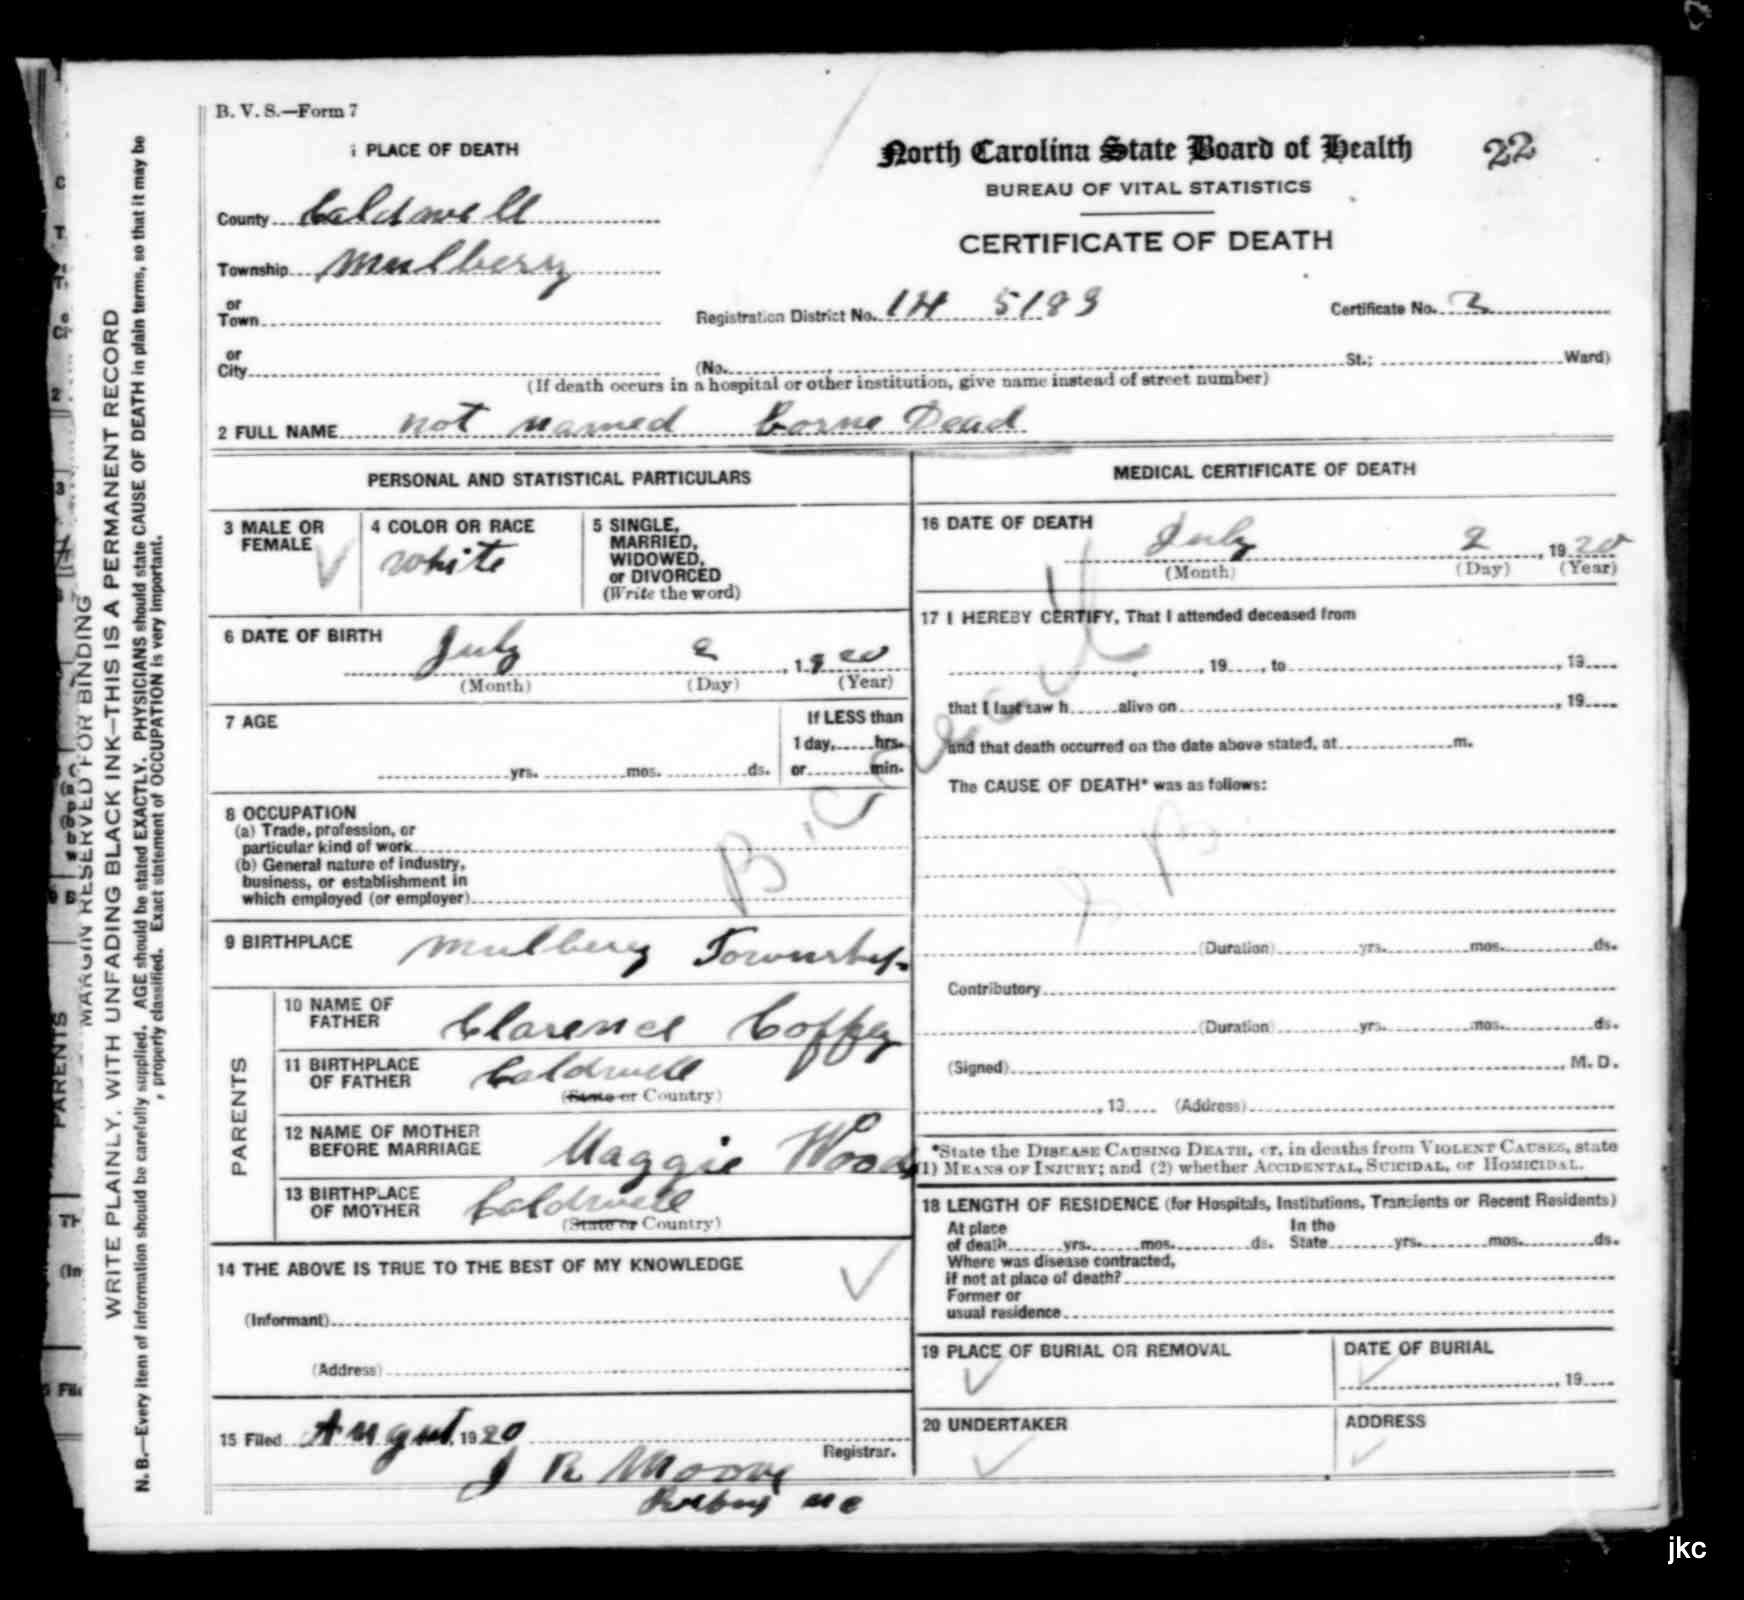 B. V. S.—Form 7
22
1 PLACE OF DEATH
North Carolina State Board of Health
BUREAU OF VITAL STATISTICS
CERTIFICATE OF DEATH
County Caldwell
Township Mulberry
or Town
Registration District No. 14 5183 Certificate No. 2
or City (No. St.; Ward)
(If death occurs in a hospital or other institution, give name instead of street number)
2 FULL NAME not named Borne Dead
PERSONAL AND STATISTICAL PARTICULARS
3 MALE OR FEMALE
4 COLOR OR RACE
white
5 SINGLE, MARRIED, WIDOWED, or DIVORCED
(Write the word)
6 DATE OF BIRTH
July 2, 1920
(Month) (Day) (Year)
7 AGE
yrs. mos. ds.
If LESS than
1 day, hrs.
or min.
8 OCCUPATION
(a) Trade, profession, or
particular kind of work
(b) General nature of industry,
business, or establishment in
which employed (or employer)
9 BIRTHPLACE Mulberry Township
PARENTS
10 NAME OF FATHER Clarence Coffey
11 BIRTHPLACE OF FATHER Caldwell
(State or Country)
12 NAME OF MOTHER BEFORE MARRIAGE Maggie Woods
13 BIRTHPLACE OF MOTHER Caldwell
(State or Country)
14 THE ABOVE IS TRUE TO THE BEST OF MY KNOWLEDGE
(Informant)
(Address)
15 Filed August, 1920
Registrar.
J R Moore
N C
MEDICAL CERTIFICATE OF DEATH
16 DATE OF DEATH
July 2, 1920
(Month) (Day) (Year)
17 I HEREBY CERTIFY, That I attended deceased from
, 19 , to , 19
that I last saw h alive on , 19
and that death occurred on the date above stated, at m.
The CAUSE OF DEATH* was as follows:
S. B.
(Duration) yrs. mos. ds.
Contributory
(Duration) yrs. mos. ds.
(Signed) , M. D.
, 19 (Address)
*State the DISEASE CAUSING DEATH, or, in deaths from VIOLENT CAUSES, state
(1) MEANS OF INJURY; and (2) whether ACCIDENTAL, SUICIDAL, or HOMICIDAL.
18 LENGTH OF RESIDENCE (for Hospitals, Institutions, Transients or Recent Residents)
At place of death yrs. mos. ds. In the State yrs. mos. ds.
Where was disease contracted,
if not at place of death?
Former or
usual residence
19 PLACE OF BURIAL OR REMOVAL
DATE OF BURIAL
, 19
20 UNDERTAKER
ADDRESS
MARGIN RESERVED FOR BINDING
WRITE PLAINLY, WITH UNFADING BLACK INK—THIS IS A PERMANENT RECORD
N. B.—Every item of information should be carefully supplied. AGE should be stated EXACTLY. PHYSICIANS should state CAUSE OF DEATH in plain terms, so that it may be
properly classified. Exact statement of OCCUPATION is very important.
PARENTS
jkc